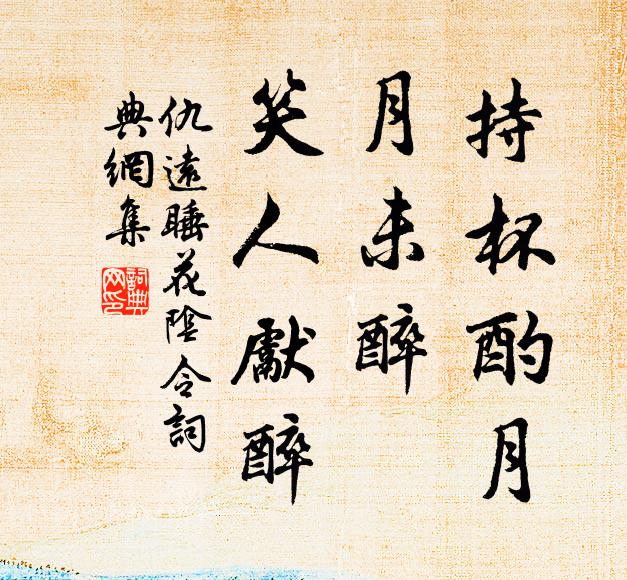 持杯酌月
月未醉
笑人獻醉
仇遠睡花陰令詞
典網集
詞典
网印